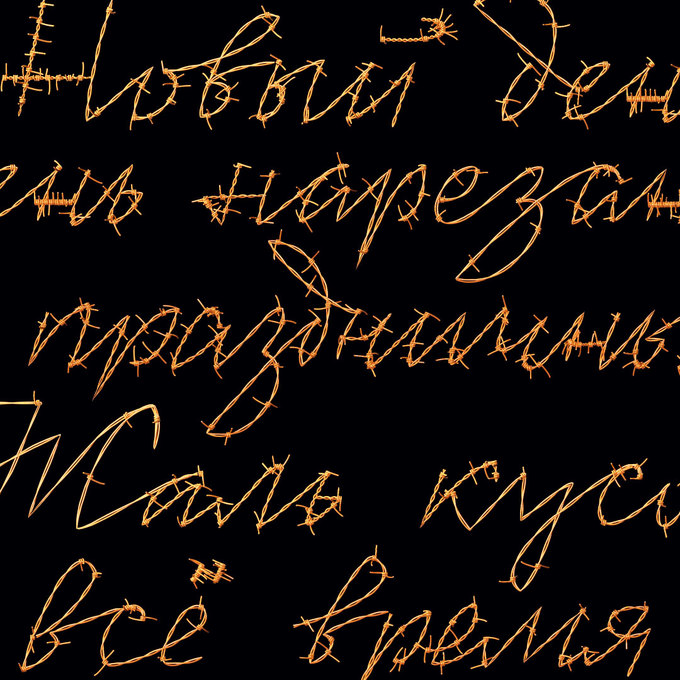 Новый ден
ень нарезан
праздничны
Жаль кусо
всё время